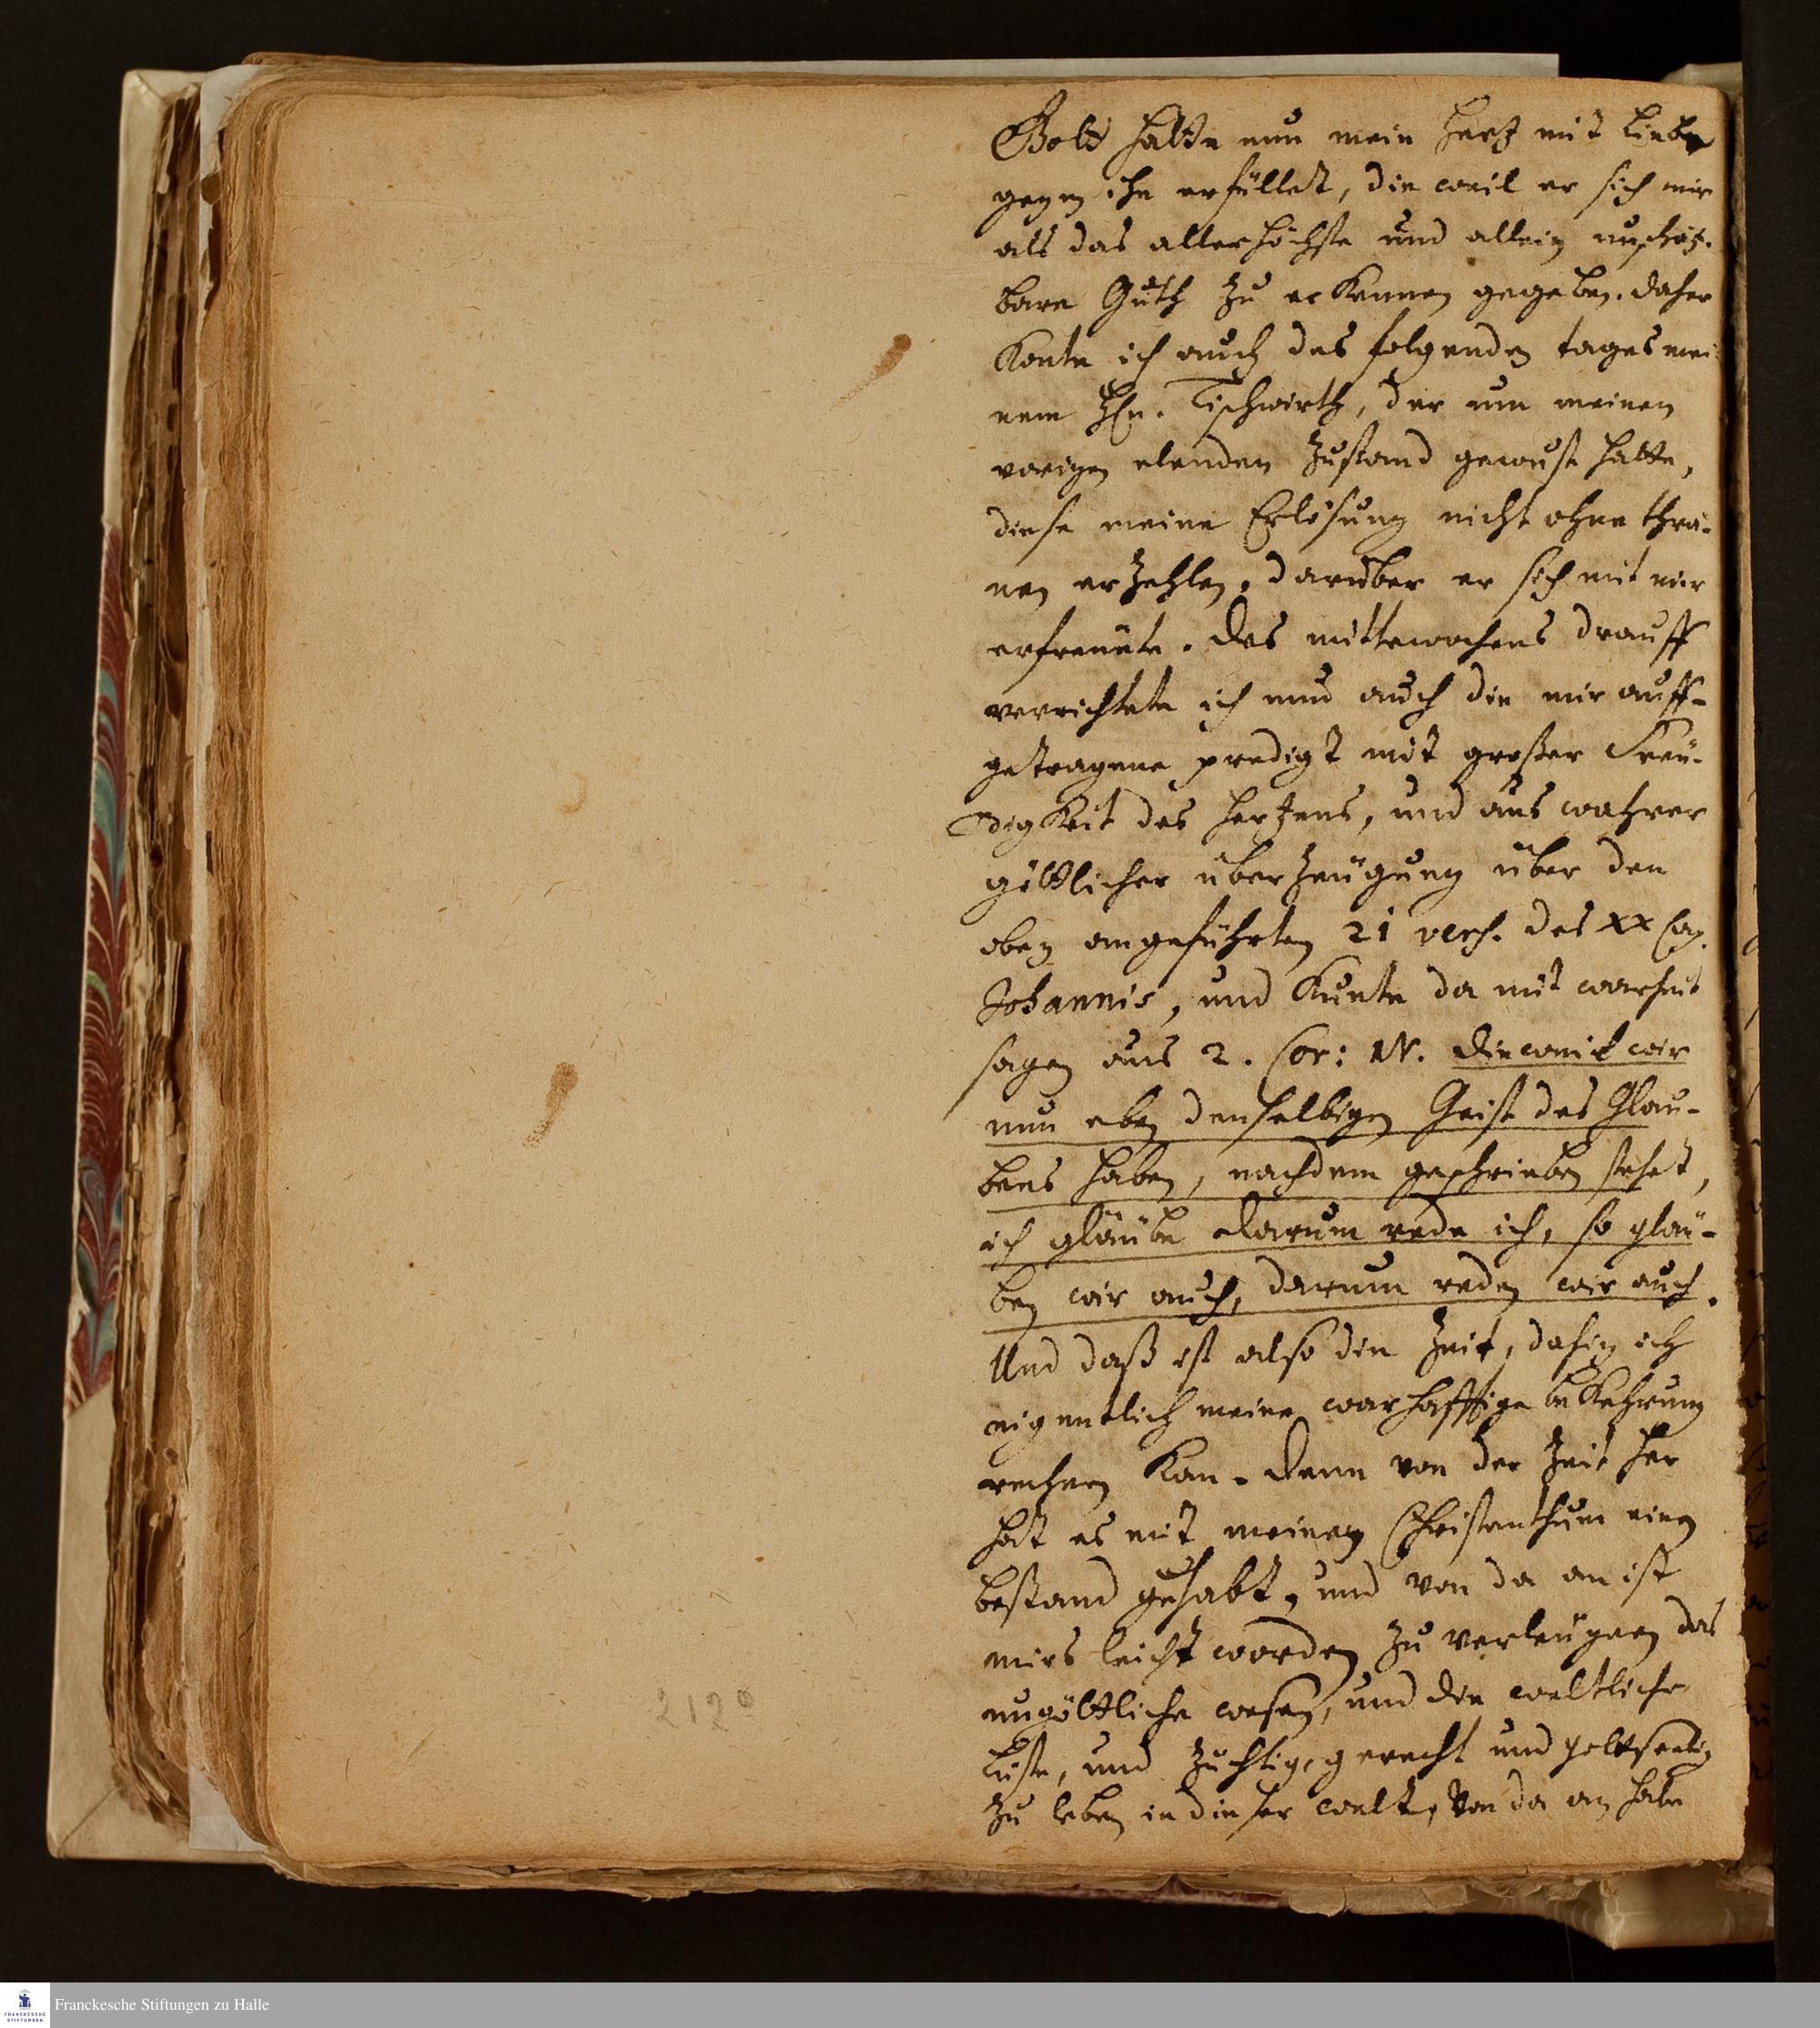 Gott hatte nun mein hertz mit liebe
gegen ihn erfüllet, die weil er sich mir
als das allerhöchste und allein unschätz-
bare Guth zu erkennen gegeben. daher
konte ich auch des folgenden tages mei
nem Hn. Tischwirth, der um meinen
vorigen elenden Zustand gewust hatte,
diese meine Erlösung nicht ohne thrä-
nen erzehlen, darüber er sich mit mir
erfreuete. Des mittewochens drauff
verrichtete ich nun auch die mir auff-
getragene predigt mit großer Freu-
digkeit des hertzens, und aus wahrer
göttlicher überzeugung über den
oben angeführten 21 vers. des XX Cap.
Johannis, und kunte da mit warheit
sagen aus 2. Cor: IV. Dieweil wir
nun eben denselbigen Geist des Glau-
bens haben, nachdem geschrieben stehet,
ich gläube darum rede ich, so gläu-
ben wir auch, darum reden wir auch.
Und daß ist also die Zeit, dahin ich
eigentlich meine warhafftige bekehrung
rechnen kan. Denn von der Zeit her
hat es mit meinem Christenthum einen
bestand gehabt, und von da an ist
mirs leicht worden zu verleugnen das
ungöttliche wesen, und die weltliche
lüste, und züchtig, gerecht und gottseelig
zu leben in dieser welt, Von da an habe
2120
Franckesche Stiftungen zu Halle
FRANCKESCHE
STIFTUNGEN